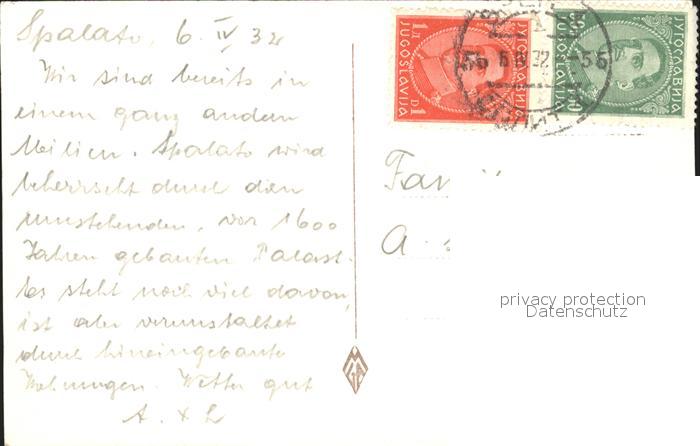 Spalato, 6. IV 32
Wir sind bereits in
einem ganz andern
Milieu. Spalato wird
beherrscht durch den
umstehenden, vor 1600
Jahren gebauten Palast.
Es steht noch viel davon,
ist aber verunstaltet
durch hineingebaute
Wohnungen. Wetter gut
A. + L
1 Д ЈУГОСЛАВИЈА
JUGOSLAVIJA 1 D
ЈУГОСЛАВИЈА
JUGOSLAVIJA
Fam
A
privacy protection
Datenschutz